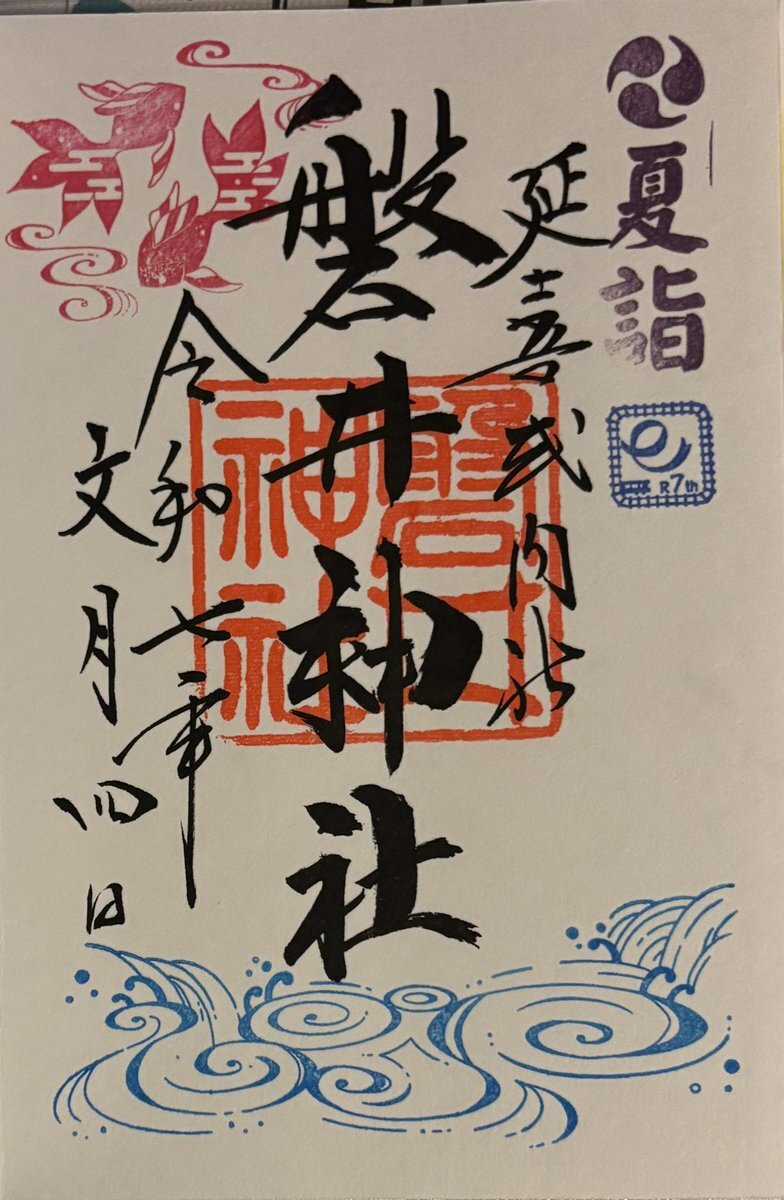 夏詣
R7th
延喜式内社
磐井神社
磐井神社
令和七年
文月四日